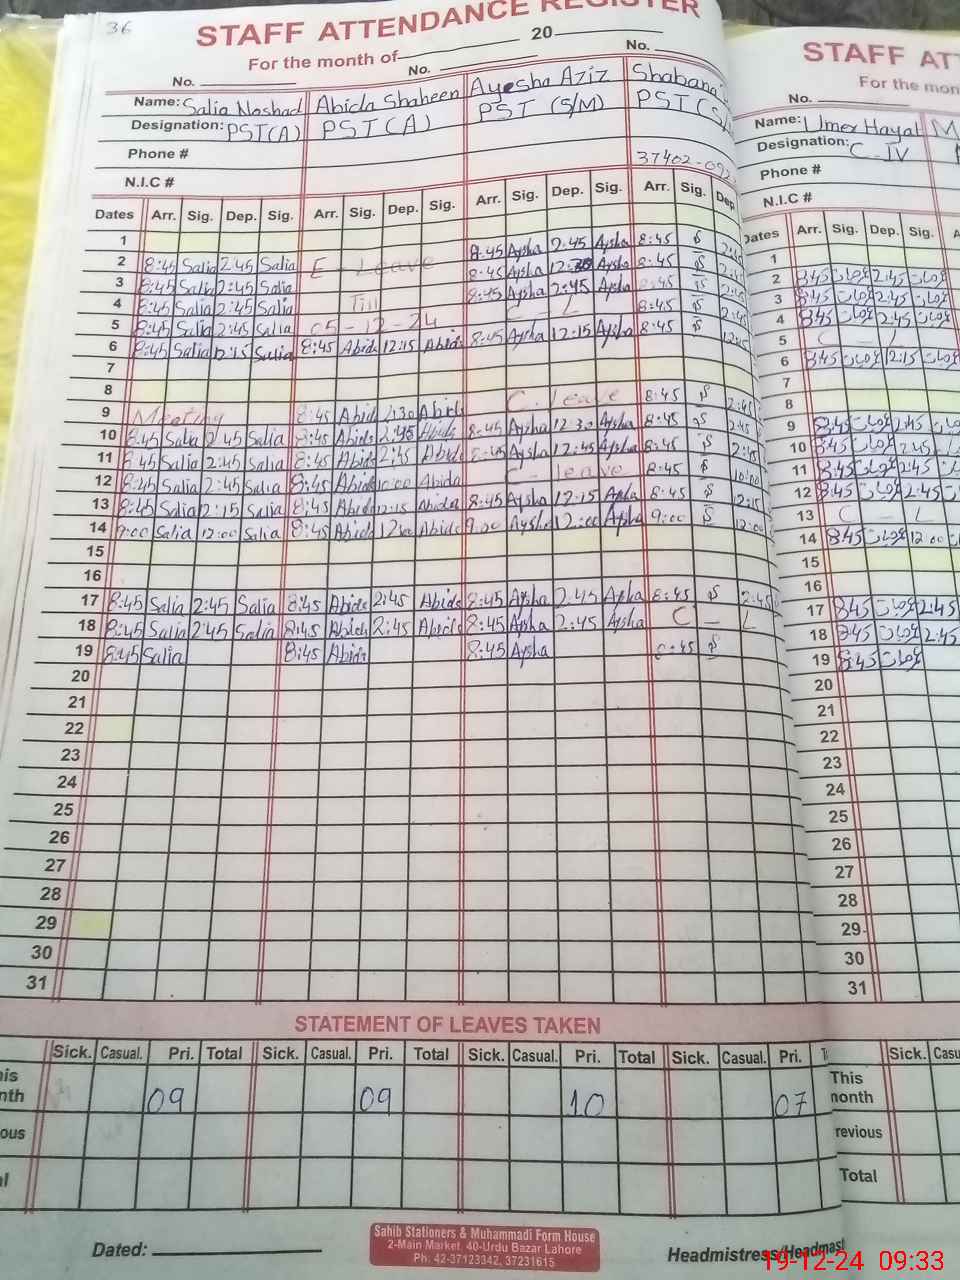 36
STAFF ATTENDANCE REGISTER
For the month of 20
No. No. No.
Name: Salia Noshad Abida Shaheen Ayesha Aziz Shabana
Designation: PST(A) PST(A) PST (S/M) PST(S/
Phone #
N.I.C # 37402-092
Dates Arr. Sig. Dep. Sig. Arr. Sig. Dep. Sig. Arr. Sig. Dep. Sig. Arr. Sig. Dep
1
2 8:45 Salia 2:45 Salia E - Leave 8:45 Aysha 2:45 Aysha 8:45 2:45
3 8:45 Salia 2:45 Salia 8:45 Aysha 12:30 Aysha 8:45 2:45
4 8:45 Salia 2:45 Salia Till 8:45 Aysha 2:45 Aysha 8:45 2:45
5 8:45 Salia 2:45 Salia 05-12-24 C - L 8:45 2:45
6 8:45 Salia 12:15 Salia 8:45 Abida 12:15 Abida 8:45 Aysha 12:15 Aysha 8:45 12:15
7
8
9 Meeting 8:45 Abida 2:30 Abida C. leave 8:45 2:45
10 8:45 Salia 2:45 Salia 8:45 Abida 2:45 Abida 8:45 Aysha 12:30 Aysha 8:45 2:45
11 8:45 Salia 2:45 Salia 8:45 Abida 2:45 Abida 8:45 Aysha 12:45 Aysha 8:45 2:45
12 8:45 Salia 2:45 Salia 8:45 Abida 10:00 Abida C - leave 8:45 10:00
13 8:45 Salia 2:15 Salia 8:45 Abida 12:15 Abida 8:45 Aysha 12:15 Aysha 8:45 12:15
14 9:00 Salia 12:00 Salia 8:45 Abida 12:00 Abida 9:00 Aysha 12:00 Aysha 9:00 12:00
15
16
17 8:45 Salia 2:45 Salia 8:45 Abida 2:45 Abida 8:45 Aysha 2:45 Aysha 8:45 2:45
18 8:45 Salia 2:45 Salia 8:45 Abida 2:45 Abida 8:45 Aysha 2:45 Aysha C - L
19 8:45 Salia 8:45 Abida 8:45 Aysha 8:45
20
21
22
23
24
25
26
27
28
29
30
31
STATEMENT OF LEAVES TAKEN
Sick. Casual. Pri. Total Sick. Casual. Pri. Total Sick. Casual. Pri. Total Sick. Casual. Pri. T
his
nth 09 09 10 07
ous
al
Dated:
Sahib Stationers & Muhammadi Form House
2-Main Market, 40-Urdu Bazar Lahore
Ph. 42-37123342, 37231615
Headmistress/Headmast
STAFF ATT
For the mon
No.
Name: Umer Hayat M
Designation: C-IV
Phone #
N.I.C #
Dates Arr. Sig. Dep. Sig. A
1
2 8:45 2:45
3 8:45 2:45
4 8:45 2:45
5 C - L
6 8:45 12:15
7
8
9 8:45 2:45
10 8:45 2:45
11 8:45 2:45
12 8:45 2:45
13 C - L
14 8:45 12:00
15
16
17 8:45 2:45
18 8:45 2:45
19 8:45
20
21
22
23
24
25
26
27
28
29
30
31
Sick. Casu
This
month
revious
Total
19-12-24 09:33